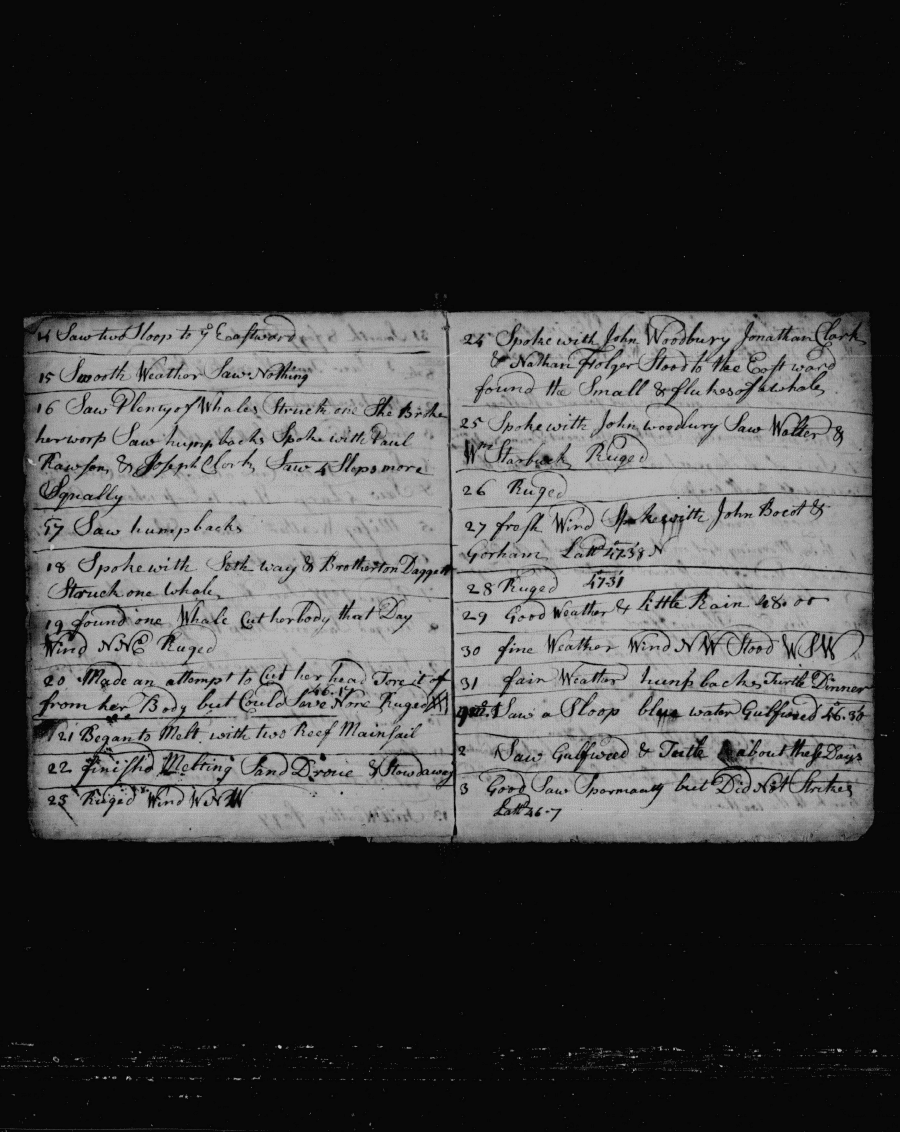 14 Saw two Sloop to ye Eastward
15 Smooth Weather Saw Nothing
16 Saw Plenty of Whales Struck one She Broke
her worp Saw humpbacks Spoke with Paul
Rawson & Joseph Clark Saw 4 Slops more
Squally
17 Saw humpbacks
18 Spoke with Seth way & Brotherton Daggett
Struck one whale
19 found one Whale Cut her body that Day
Wind NNE Ruged
20 Made an attempt to Cut her head Tore it of
46-17
from her Body but Could Save None Ruged
21 Began to Melt with two Reef Mainsail
22 finishd Melting Sand Drove & Stowd away
23 Ruged Wind WNW
24 Spoke with John Woodbury Jonathan Clark
& Nathan Folger Stood to the Eastward
found the Small & flukes of a whale
25 Spoke with John woodbury Saw Walter &
Wm Starbuck Ruged
26 Ruged
27 fresh Wind Spoke with John Bocot &
Gorham Latt 47-38 N
28 Ruged 47-31
29 Good Weather & little Rain 48-00
30 fine Weather Wind NW Stood WSW
31 fair Weather humpbacks Turtle Dinner
1 Saw a Sloop blue water Gulfweed 46-30
2 Saw Gulfweed & Tutle about these Days
3 Good Saw Spormaty but Did Not Strike
Latt 46-7